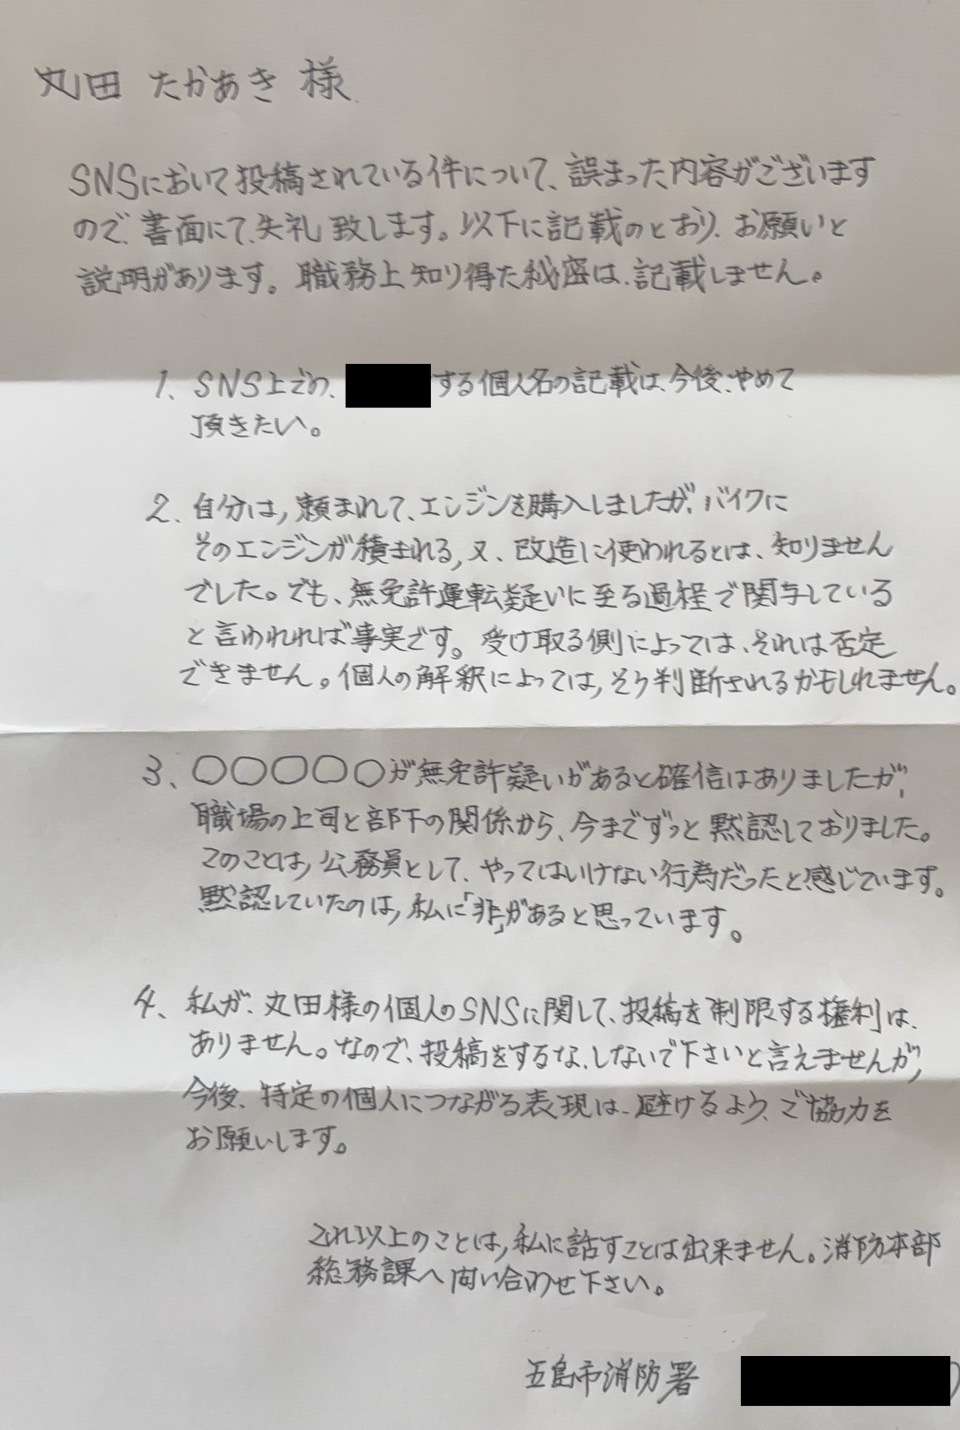 丸田 たかあき 様
SNSにおいて投稿されている件について、誤まった内容がございます
ので、書面にて、失礼致します。以下に記載のとおり、お願いと
説明があります。職務上知り得た秘密は、記載しません。
1、SNS上での、する個人名の記載は、今後、やめて
頂きたい。
2、自分は、頼まれて、エンジンを購入しましたが、バイクに
そのエンジンが積まれる、又、改造に使われるとは、知りません
でした。でも、無免許運転疑いに至る過程で関与している
と言われれば事実です。受け取る側によっては、それは否定
できません。個人の解釈によっては、そう判断されるかもしれません。
3、〇〇〇〇〇が無免許疑いがあると確信はありましたが、
職場の上司と部下の関係から、今までずっと黙認しておりました。
このことは、公務員として、やってはいけない行為だったと感じています。
黙認していたのは、私に「非」があると思っています。
4、私が、丸田様の個人のSNSに関して、投稿を制限する権利は、
ありません。なので、投稿をするな、しないで下さいと言えませんが、
今後、特定の個人につながる表現は、避けるよう、ご協力を
お願いします。
これ以上のことは、私に話すことは出来ません。消防本部
総務課へ問い合わせ下さい。
五島市消防署